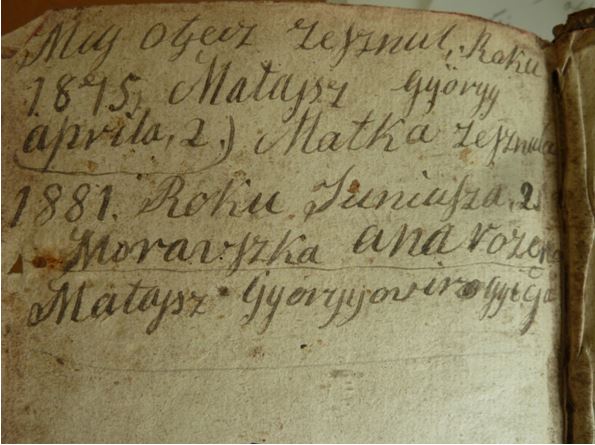 Mig otyecz zesznul, Roku
1875, Matajsz György
aprila, 2.) Matka zesznula
1881. Roku Juniusza, 2
Moravszka ana rozena
Matajsz Györgyovi